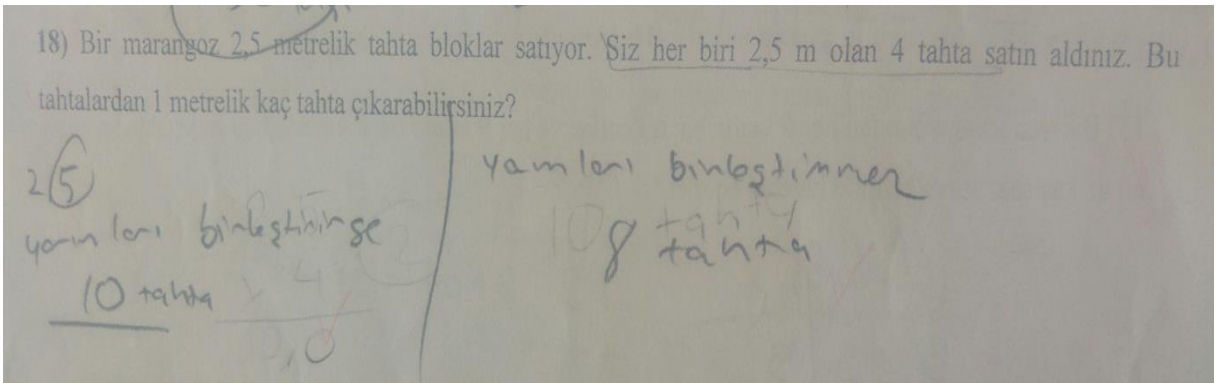 18) Bir marangoz 2,5 metrelik tahta bloklar satıyor. Siz her biri 2,5 m olan 4 tahta satın aldınız. Bu
tahtalardan 1 metrelik kaç tahta çıkarabilirsiniz?
2 5
yarımları birleştirirse
10 tahta
x 4
,0
yarımları birleştirmez
10 tahta
8 tahta